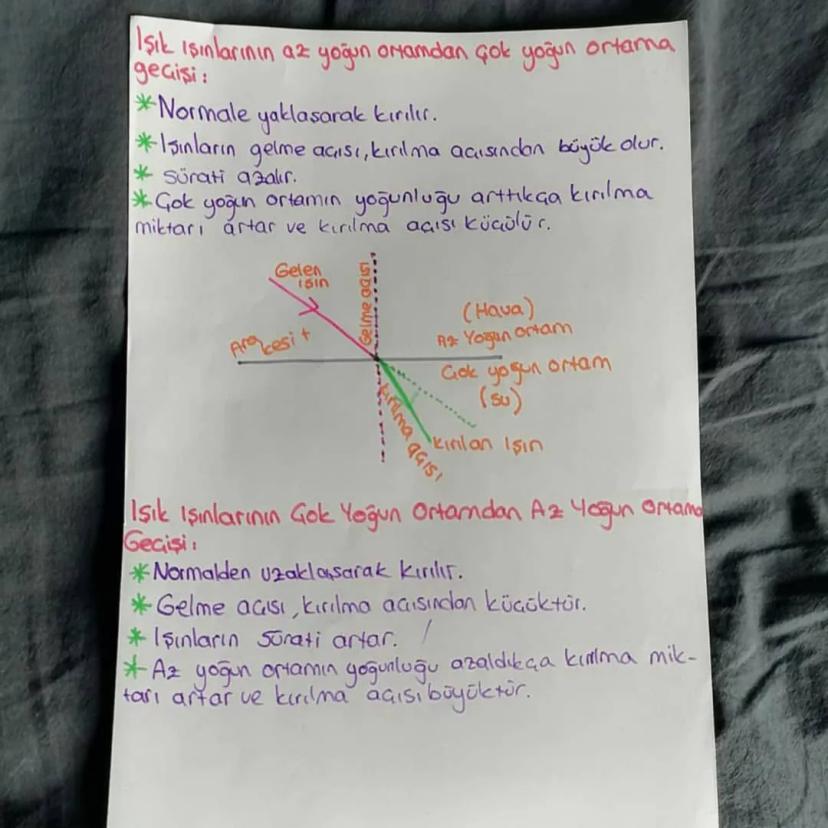 Işık ışınlarının az yoğun ortamdan çok yoğun ortama
geçişi:
*Normale yaklaşarak kırılır.
*Işınların gelme açısı, kırılma açısından büyük olur.
* sürati azalır.
*Çok yoğun ortamın yoğunluğu arttıkça kırılma
miktarı artar ve kırılma açısı küçülür.
Gelen
ışın
Gelme açısı
(Hava)
Az Yoğun ortam
Ara kesit
Çok yoğun ortam
(su)
kırılma açısı
kırılan Işın
Işık Işınlarının Çok Yoğun Ortamdan Az Yoğun Ortama
Geçişi:
*Normalden uzaklaşarak kırılır.
* Gelme açısı, kırılma açısından küçüktür.
* Işınların sürati artar.
*Az yoğun ortamın yoğunluğu azaldıkça kırılma mik-
tarı artar ve kırılma açısı büyüktür.